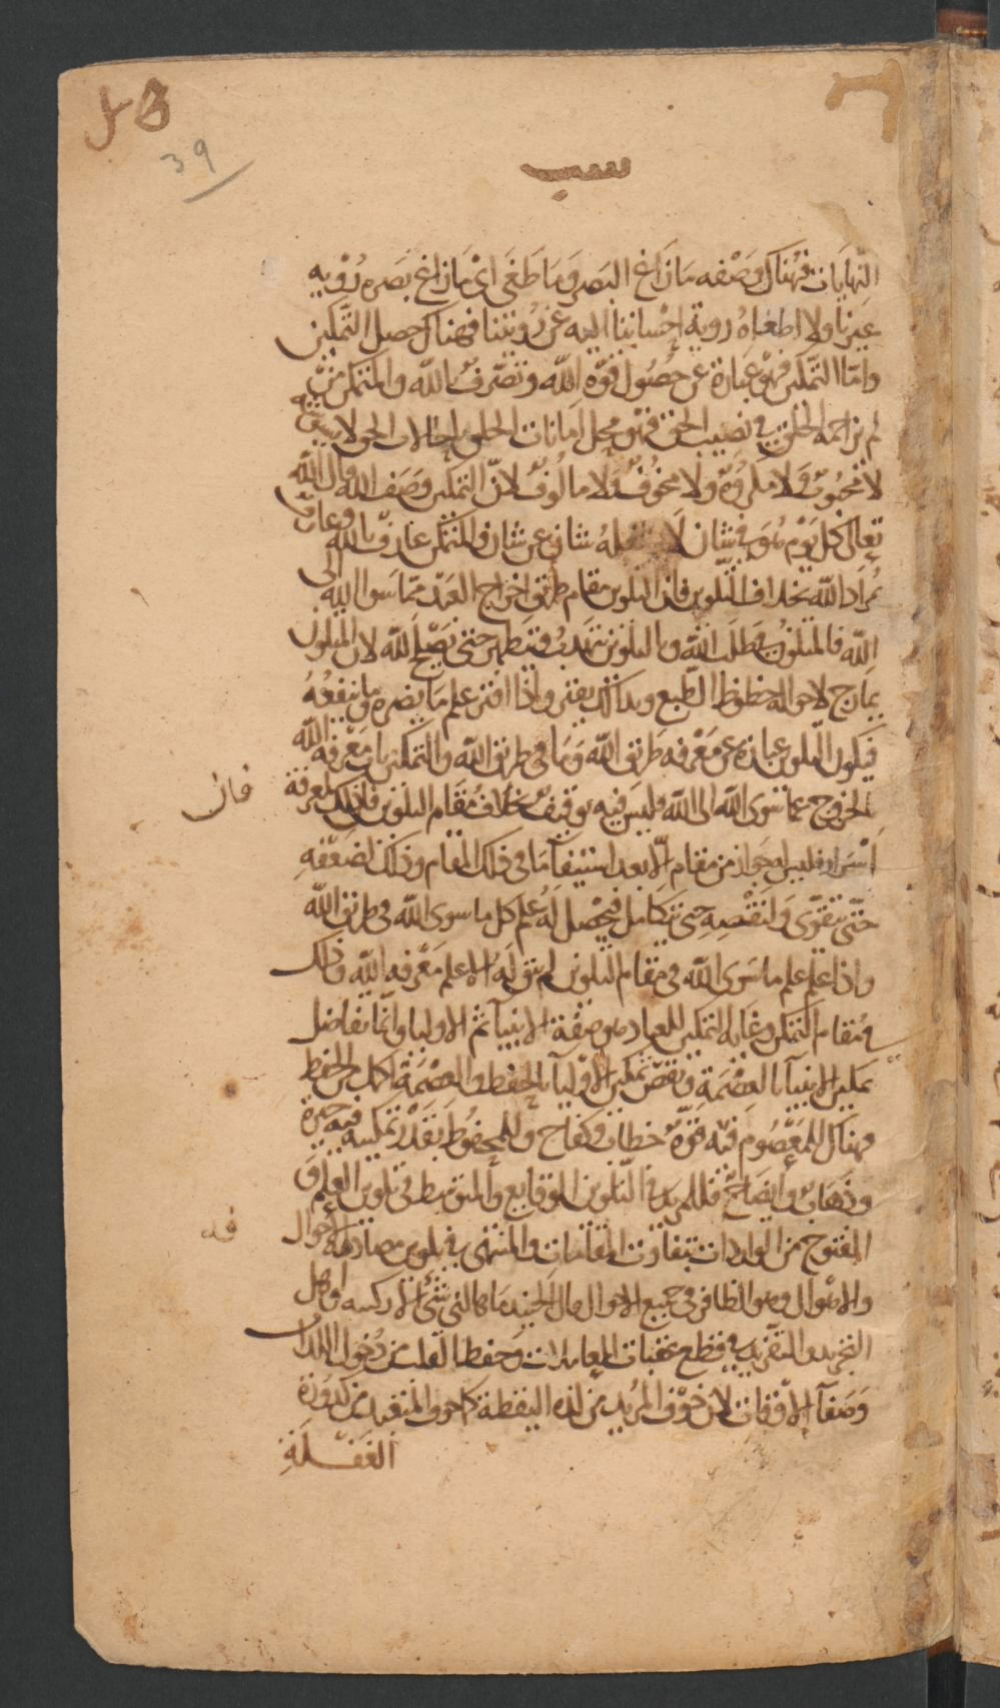 39
النهايات فهناك وصفه مَا زَاغَ البَصَر وَمَا طَغَى اىْ مَا زاغ بصَره رُؤْيه
غيرنا ولا اطغاهُ روية إحْسَاننا اليه عن رُويتنا فهناك حصل التَّمكين
وامّا التمكين فهو عبَارة عن حصُول قوّه الله وتصّرف الله والمتمكن مَنْ
لم تزاحمه الخلق فى نصيب الحق فهو محل امانات الخلق حالات الحق لا
لا محبُوبٌ ولا مكروُهٌ ولا مخوُفٌ ولا مالُوفٌ لانّ التمكين وَصَف الله قال الله
تعالى كل يَوْم هُوَ فى شان لَا شان عن شان والمتمكن عارف بالله وعارف
مُرادَ الله بخلاف التلوين فان التلوين مقام طريق اخراج العَبْد ممّا سَوا الله الى
الله فالمتلوّن يطلَب الله وبالتلوين يتهذبُ ويتطهر حتى يَصْلح لله لان المتلون
يمازج لاحواله حظوظ الطبع وبذلك يفتر واذا افتر علم مَا يضره وما ينفعُهُ
فيكون التلوين عبارة عن مَعْرفه طريق الله وَمَا فى طريق الله والتمكين باب مَعْرفه الله
الخروج عما سوى الله الى الله وليسَ فيه توقيفٌ بخلاف مقام التلوين فان لمعرفة
فان
اسْتَرار فليس له جَواز من مقام الّا بعد استيفآ مَا فى ذلك المقام وذلك لضعْفهِ
حتّى يتقوّى وَلنقْصِهِ حتى يتكامل فيحْصل لَهُ علم كل ما سوى الله فى طريق الله
واذا علم علم ما سَوى الله فى مقام التلوين لم يبق لَه الا علم مَعْرفه الله وذلك
فى مُقام التمكن وغايه التمكين للعباد هو صفة الانبيآ ثم الاوليا وانّما تفاضل
تمكين الانبيآ بالعصْمَةِ ونقصَ تمكين الاوْليآ بالحفظ والعِصْمَة اكمل من الحفظ
فهناك للمَعْصُوم فيه قوّة خطاب وكفاح وللمحفوُظ بقدْر تمكينه فيه حيرة
وذهابٌ وايضاحٌ فللمريد فى التّلوين الوقايع والمتوسّط فى تلوين العلم
المفتوح من الواردات بتفاوت المقامات والمنتهى فى تلوين مصادمة الاحوال
فيه
والاهْوال وهو الظافر فى جميع الاحوال قال الجنيد مَا هالنى شَئٌ الا ركبته اول
التجريد والتفريد فى قطع عقبات المعاملات وحفظ القلب من دُخول
وَصَفآ الاوْقات لان خوْف المريد من لذه اليقظة كخوف المتعبد من كدورَة
الغفــلَةِ